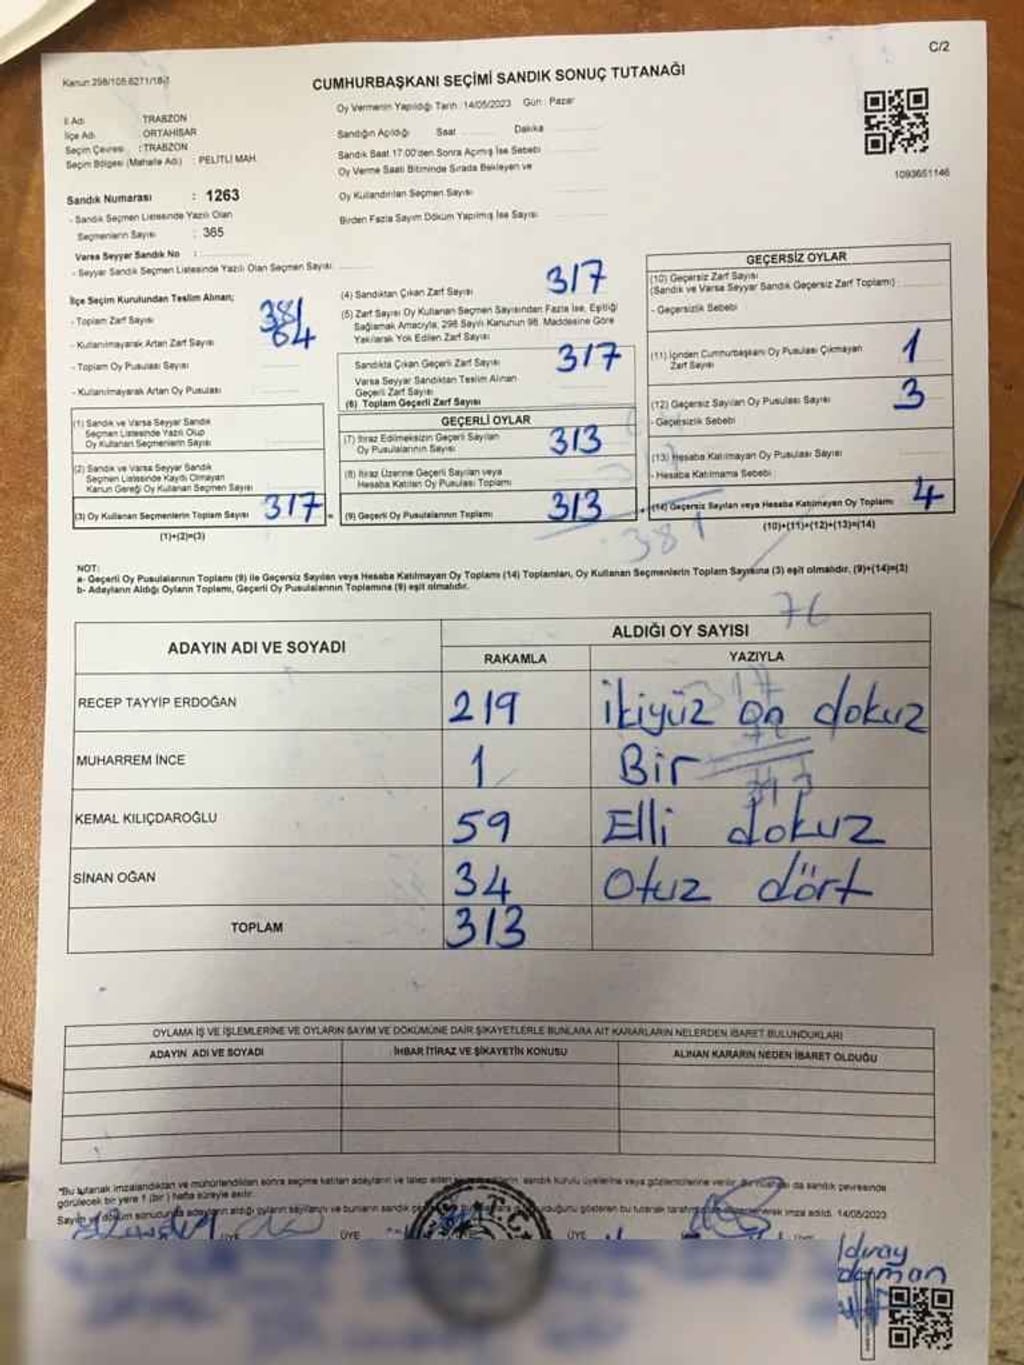 C/2
Kanun 298/105 6271/18-1
CUMHURBAŞKANI SEÇİMİ SANDIK SONUÇ TUTANAĞI
Oy Vermenin Yapıldığı Tarih : 14/05/2023 Gün : Pazar
İl Adı : TRABZON
İlçe Adı : ORTAHİSAR
Seçim Çevresi : TRABZON
Seçim Bölgesi (Mahalle Adı) : PELİTLİ MAH.
Sandığın Açıldığı Saat Dakika
Sandık Saat 17:00'den Sonra Açımış İse Sebebi
Oy Verme Saati Bitiminde Sırada Bekleyen ve
Oy Kullandırılan Seçmen Sayısı
Birden Fazla Sayım Döküm Yapılmış İse Sayısı
1093651146
Sandık Numarası : 1263
- Sandık Seçmen Listesinde Yazılı Olan
Seçmenlerin Sayısı : 365
Varsa Seyyar Sandık No :
- Seyyar Sandık Seçmen Listesinde Yazılı Olan Seçmen Sayısı
İlçe Seçim Kurulundan Teslim Alınan;
- Toplam Zarf Sayısı 381
- Kullanılmayarak Artan Zarf Sayısı 64
- Toplam Oy Pusulası Sayısı
- Kullanılmayarak Artan Oy Pusulası
(1) Sandık ve Varsa Seyyar Sandık
Seçmen Listesinde Yazılı Olup
Oy Kullanan Seçmenlerin Sayısı
(2) Sandık ve Varsa Seyyar Sandık
Seçmen Listesinde Kaydı Olmayan
Kanun Gereği Oy Kullanan Seçmen Sayısı
(3) Oy Kullanan Seçmenlerin Toplam Sayısı 317
(1)+(2)=(3)
(4) Sandıktan Çıkan Zarf Sayısı 317
(5) Zarf Sayısı Oy Kullanan Seçmen Sayısından Fazla İse, Eşitliği
Sağlamak Amacıyla, 298 Sayılı Kanunun 98. Maddesine Göre
Yakılarak Yok Edilen Zarf Sayısı
Sandıkta Çıkan Geçerli Zarf Sayısı 317
Varsa Seyyar Sandıktan Teslim Alınan
Geçerli Zarf Sayısı
(6) Toplam Geçerli Zarf Sayısı
GEÇERLİ OYLAR
(7) İtiraz Edilmeksizin Geçerli Sayılan
Oy Pusulalarının Sayısı 313
(8) İtiraz Üzerine Geçerli Sayılan veya
Hesaba Katılan Oy Pusulası Toplamı
(9) Geçerli Oy Pusulalarının Toplamı 313
GEÇERSİZ OYLAR
(10) Geçersiz Zarf Sayısı
(Sandık ve Varsa Seyyar Sandık Geçersiz Zarf Toplamı)
- Geçersizlik Sebebi
(11) İçinden Cumhurbaşkanı Oy Pusulası Çıkmayan
Zarf Sayısı 1
(12) Geçersiz Sayılan Oy Pusulası Sayısı 3
- Geçersizlik Sebebi
(13) Hesaba Katılmayan Oy Pusulası Sayısı
- Hesaba Katılmama Sebebi
(14) Geçersiz Sayılan veya Hesaba Katılmayan Oy Toplamı 4
(10)+(11)+(12)+(13)=(14)
381
NOT:
a- Geçerli Oy Pusulalarının Toplamı (9) ile Geçersiz Sayılan veya Hesaba Katılmayan Oy Toplamı (14) Toplamları, Oy Kullanan Seçmenlerin Toplam Sayısına (3) eşit olmalıdır. (9)+(14)=(3)
b- Adayların Aldığı Oyların Toplamı, Geçerli Oy Pusulalarının Toplamına (9) eşit olmalıdır.
76
ADAYIN ADI VE SOYADI ALDIĞI OY SAYISI
RAKAMLA YAZIYLA
RECEP TAYYİP ERDOĞAN 219 İkiyüz on dokuz
MUHARREM İNCE 1 Bir
KEMAL KILIÇDAROĞLU 59 Elli dokuz
SİNAN OĞAN 34 Otuz dört
TOPLAM 313
OYLAMA İŞ VE İŞLEMLERİNE VE OYLARIN SAYIM VE DÖKÜMÜNE DAİR ŞİKAYETLERLE BUNLARA AİT KARARLARIN NELERDEN İBARET BULUNDUKLARI
ADAYIN ADI VE SOYADI İHBAR İTİRAZ VE ŞİKAYETİN KONUSU ALINAN KARARIN NEDEN İBARET OLDUĞU
"Bu tutanak imzalandıktan ve mühürlendikten sonra seçime katılan adayların ve talep eden sandık kurulu üyelerine veya gözlemcilerine verilir. Bir nüshası da sandık çevresinde
görülecek bir yere 1 (bir) hafta süreyle asılır.
Sayım ve döküm sonucunda adayların aldığı oyların sayılarını ve bunların sandık olduğunu gösteren bu tutanak imza edildi. 14/05/2023
ÜYE ÜYE ÜYE